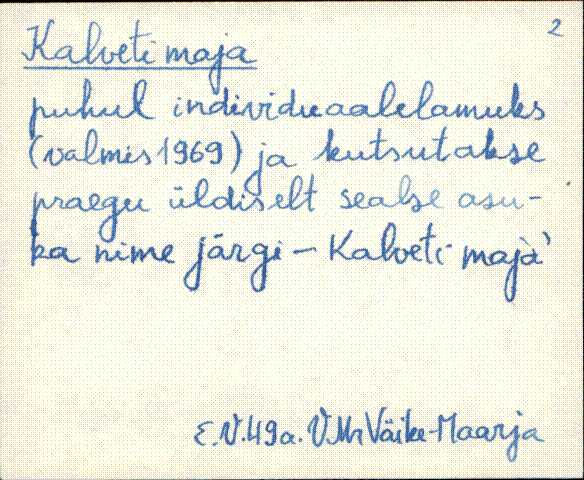 2
Kalveti maja
puhul individuaalelamuks
(valmis 1969) ja kutsutakse
praegu üldiselt sealse asu-
ka nime järgi - Kalveti maja'
E.V. 49 a. V.Mr Väike-Maarja